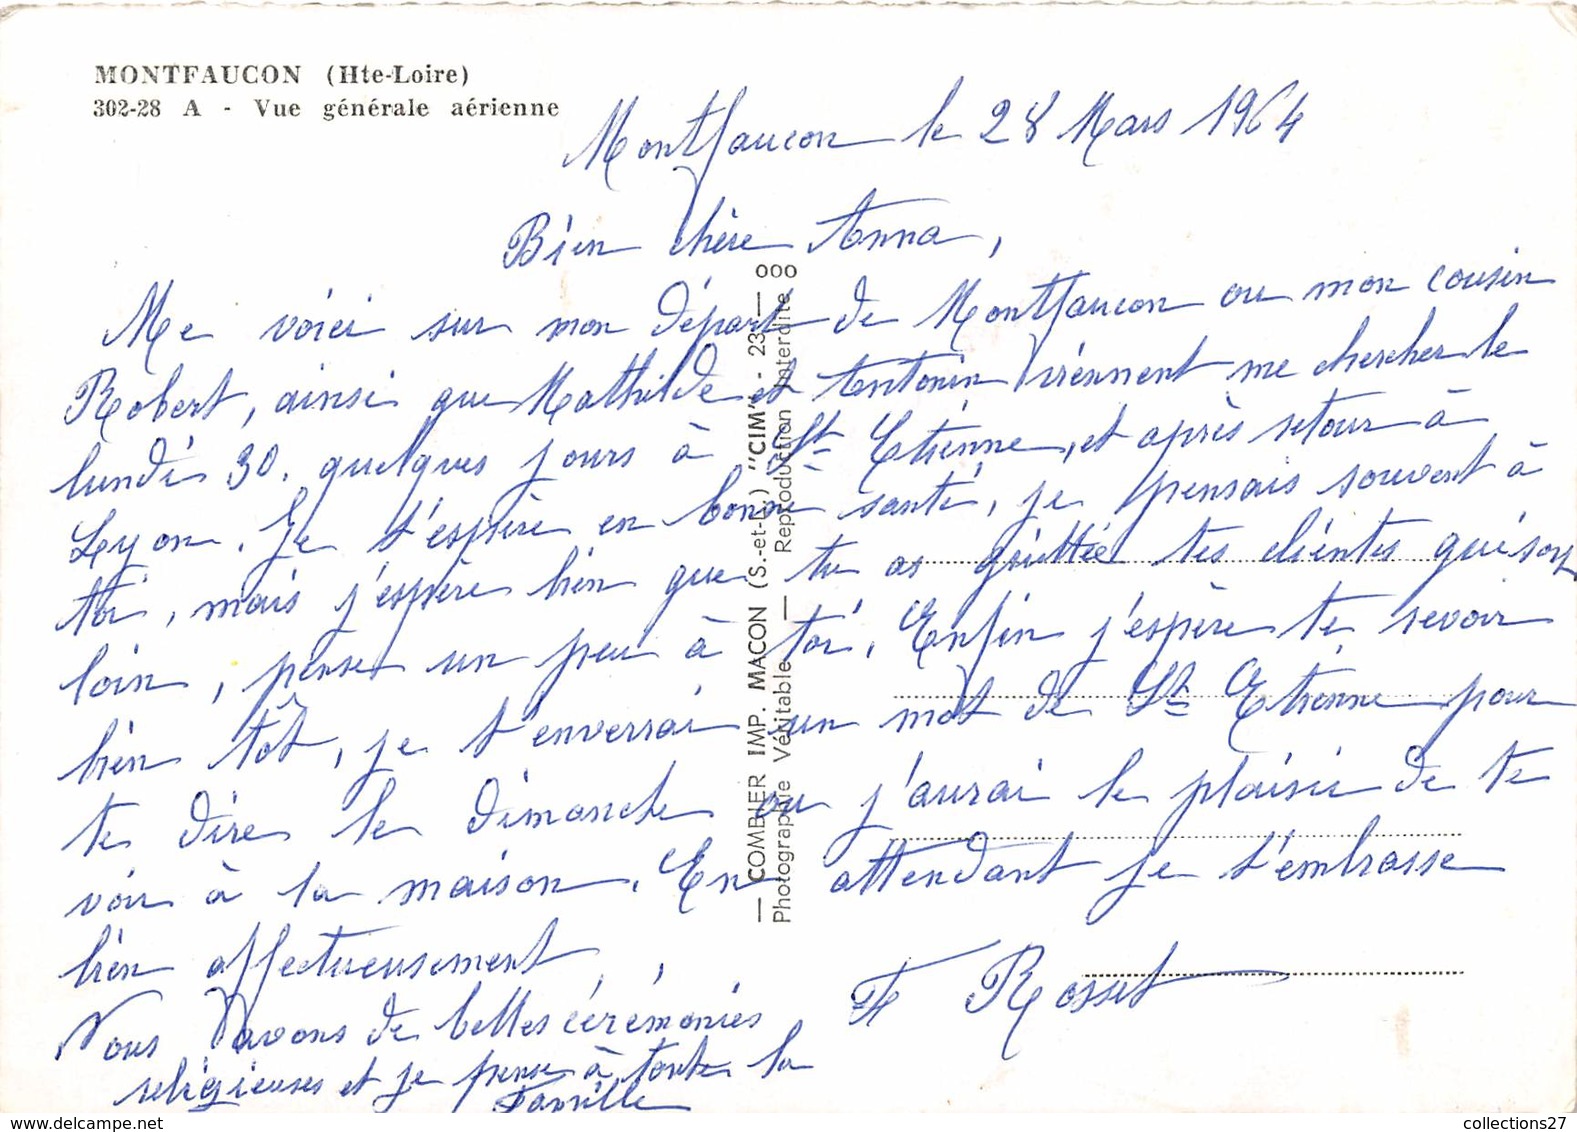 MONTFAUCON (Hte-Loire)
302-28 A - Vue générale aérienne
Montfaucon le 28 Mars 1964
Bien chère Anna,
Me voici sur mon départ de Montfaucon ou mon cousin
Robert, ainsi que Mathilde et Antonin viennent me chercher le
lundi 30. quelques jours à St Etienne, et après retour à
Lyon. Je t'espère en bonne santé, je pensais souvent à
toi, mais j'espère bien que tu as quittée tes clientes qui sont
loin, pense un peu à toi. Enfin j'espère te revoir
bien tôt, je t'enverrai un mot de St Etienne pour
te dire le dimanche ou j'aurai le plaisir de te
voir à la maison. En attendant je t'embrasse
bien affectueusement,
F Rosset
Nous avons de belles cérémonies
religieuses et je pense à toute la
Famille
— COMBIER IMP. MACON (S.-et-L.) "CIM" - 23 — ooo
Photographie Véritable — Reproduction Interdite
collections27